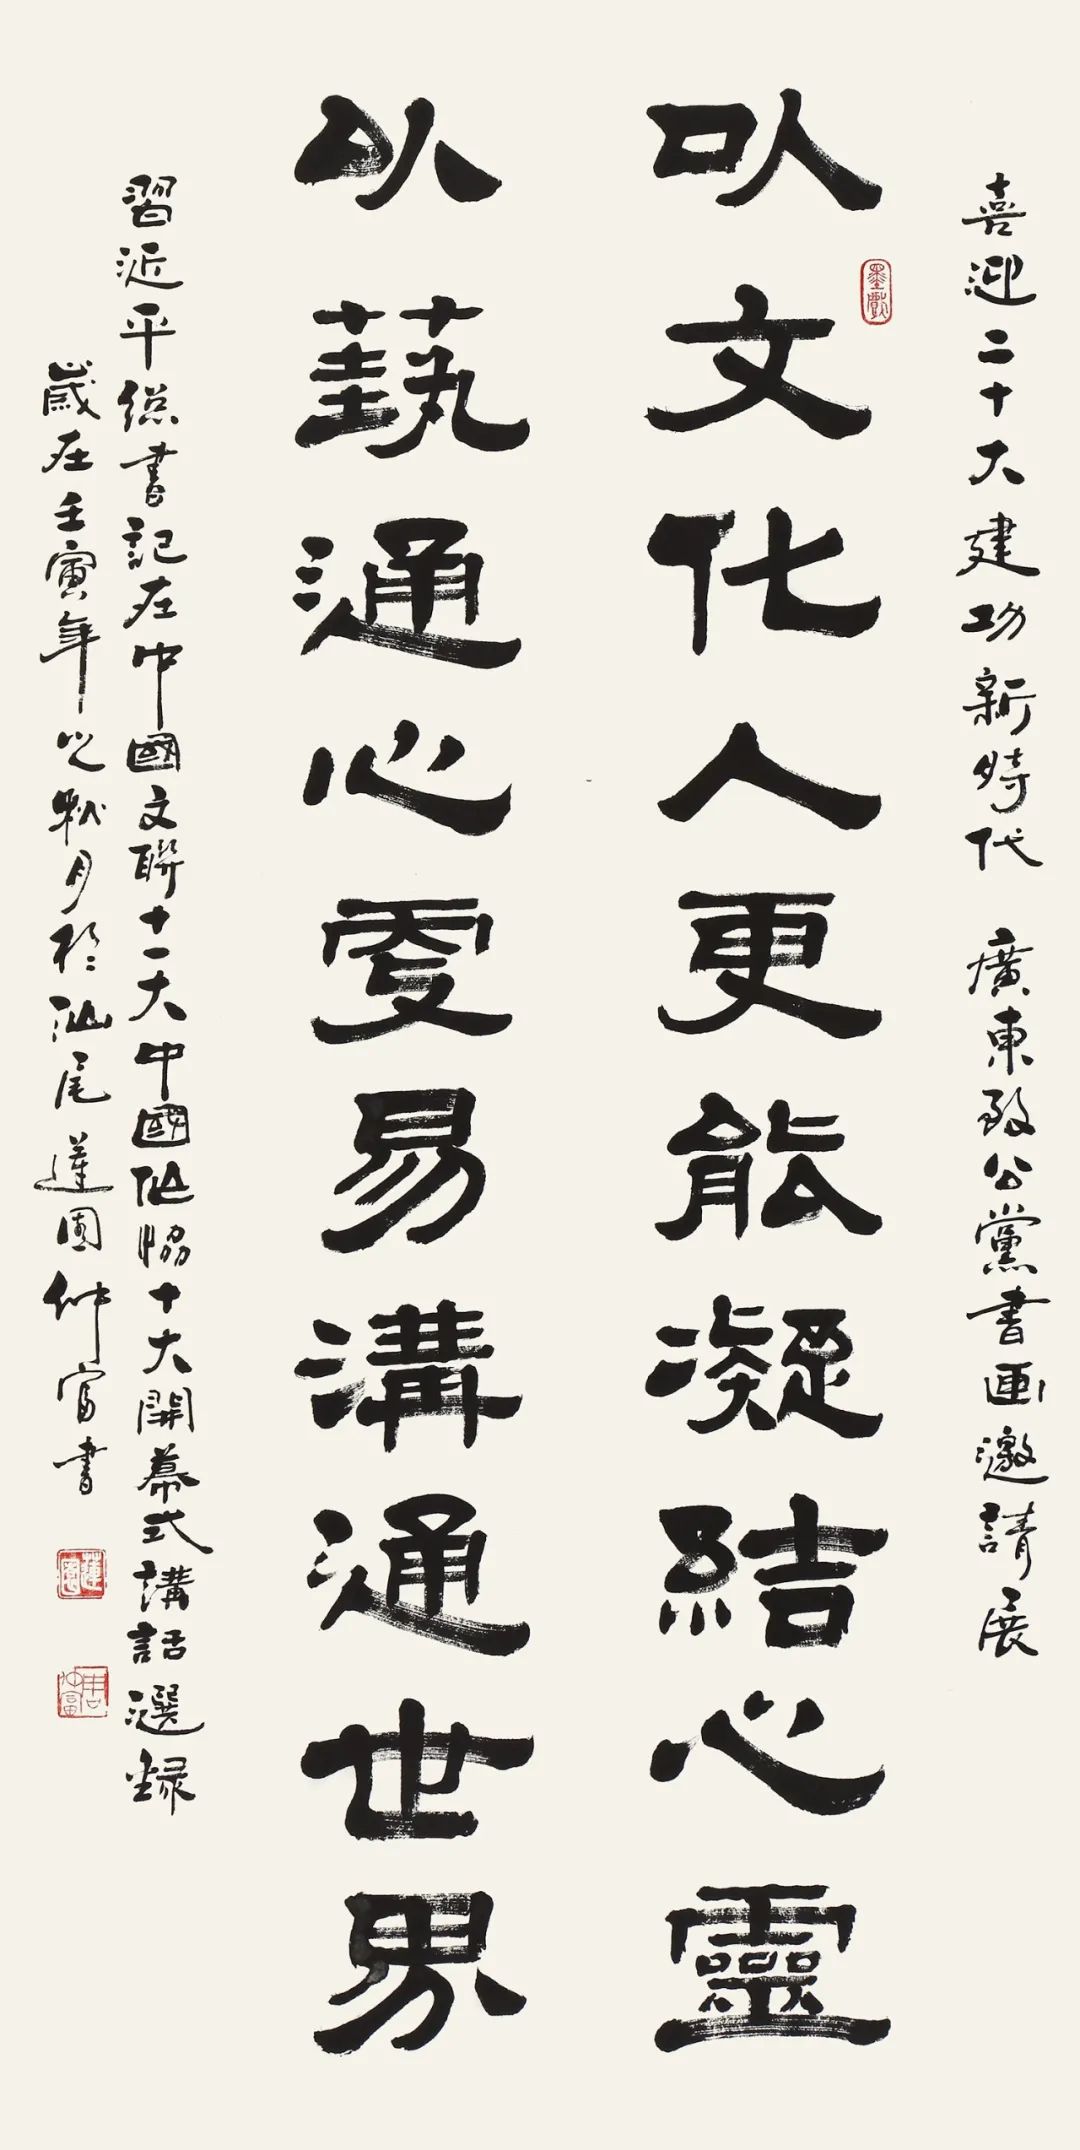 喜迎二十大建功新時代 廣東致公黨書画邀請展
以文化人更能凝結心靈
以藝通心更易溝通世界
習近平總書記在中國文聯十一大中國作協十大開幕式講話選録
歲在壬寅年之秋月於汕尾蓮園仲富書
蓮園
唐仲富